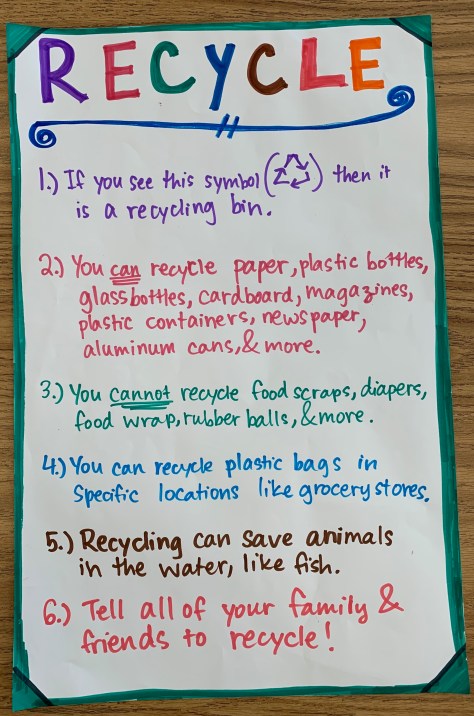 RECYCLE
1.) If you see this symbol (♻) then it
is a recycling bin.
2.) You can recycle paper, plastic bottles,
glass bottles, cardboard, magazines,
plastic containers, newspaper,
aluminum cans, & more.
3.) You cannot recycle food scraps, diapers,
food wrap, rubber balls, & more.
4.) You can recycle plastic bags in
specific locations like grocery stores.
5.) Recycling can save animals
in the water, like fish.
6.) Tell all of your family &
friends to recycle!